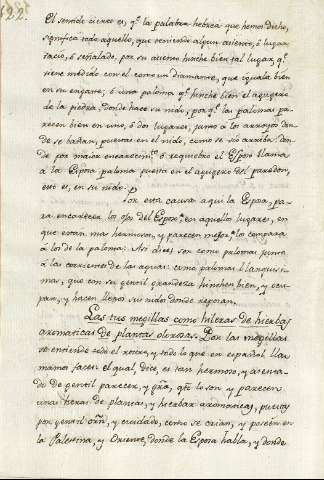 122.
El sentido cierto es, q.e la palabra hebrea que hemos dicho,
significa todo aquello, que teniendo algun asiento, ò lugar
vacio, ò señalado, por su asiento hinche bien tal lugar, q.e
viene medido con el como un diamante, que iguala bien
en su engaste, ò una paloma q.e hinche bien el agugero
de la piedra, donde hace su nido; porq.e las palomas pa-
recen bien en uno, ò dos lugares, junto à los arroyos don-
de se bañan, puestas en el nido, como se vio arriba: don-
de por maior encarecim.to ò requiebro el Esposo llama
à la Esposa paloma puesta en el agugero del paredon,
esto es, en su nido.
Por esta causa aqui la Esposa, pa-
ra encarecer los ojos del Esposo, en aquellos lugares, en
que estan mas hermosos, y parecen mejor, los compara
à los de la paloma: Asi dice, son como palomas junto
à las corrientes de las aguas: como palomas blanquisi-
mas, que con su gentil grandeza hinchen bien, y ocu-
pan, y hacen llenos sus nidos donde reposan.
Las tus megillas como hileras de hierbas
aromaticas de plantas olorosas. Por las megillas
se entiende todo el rostro, y todo lo que en español lla-
mamos faces: el qual, dice, es tan hermoso, y asenta-
do de gentil parecer, y gra, q.to lo son, y parecen
unas heras de plantas, y hierbas aromaticas, puestas
por gentil orn, y cuidado, como se crian, y poseen en
la Palestina, y Oriente, donde la Esposa habla, y donde